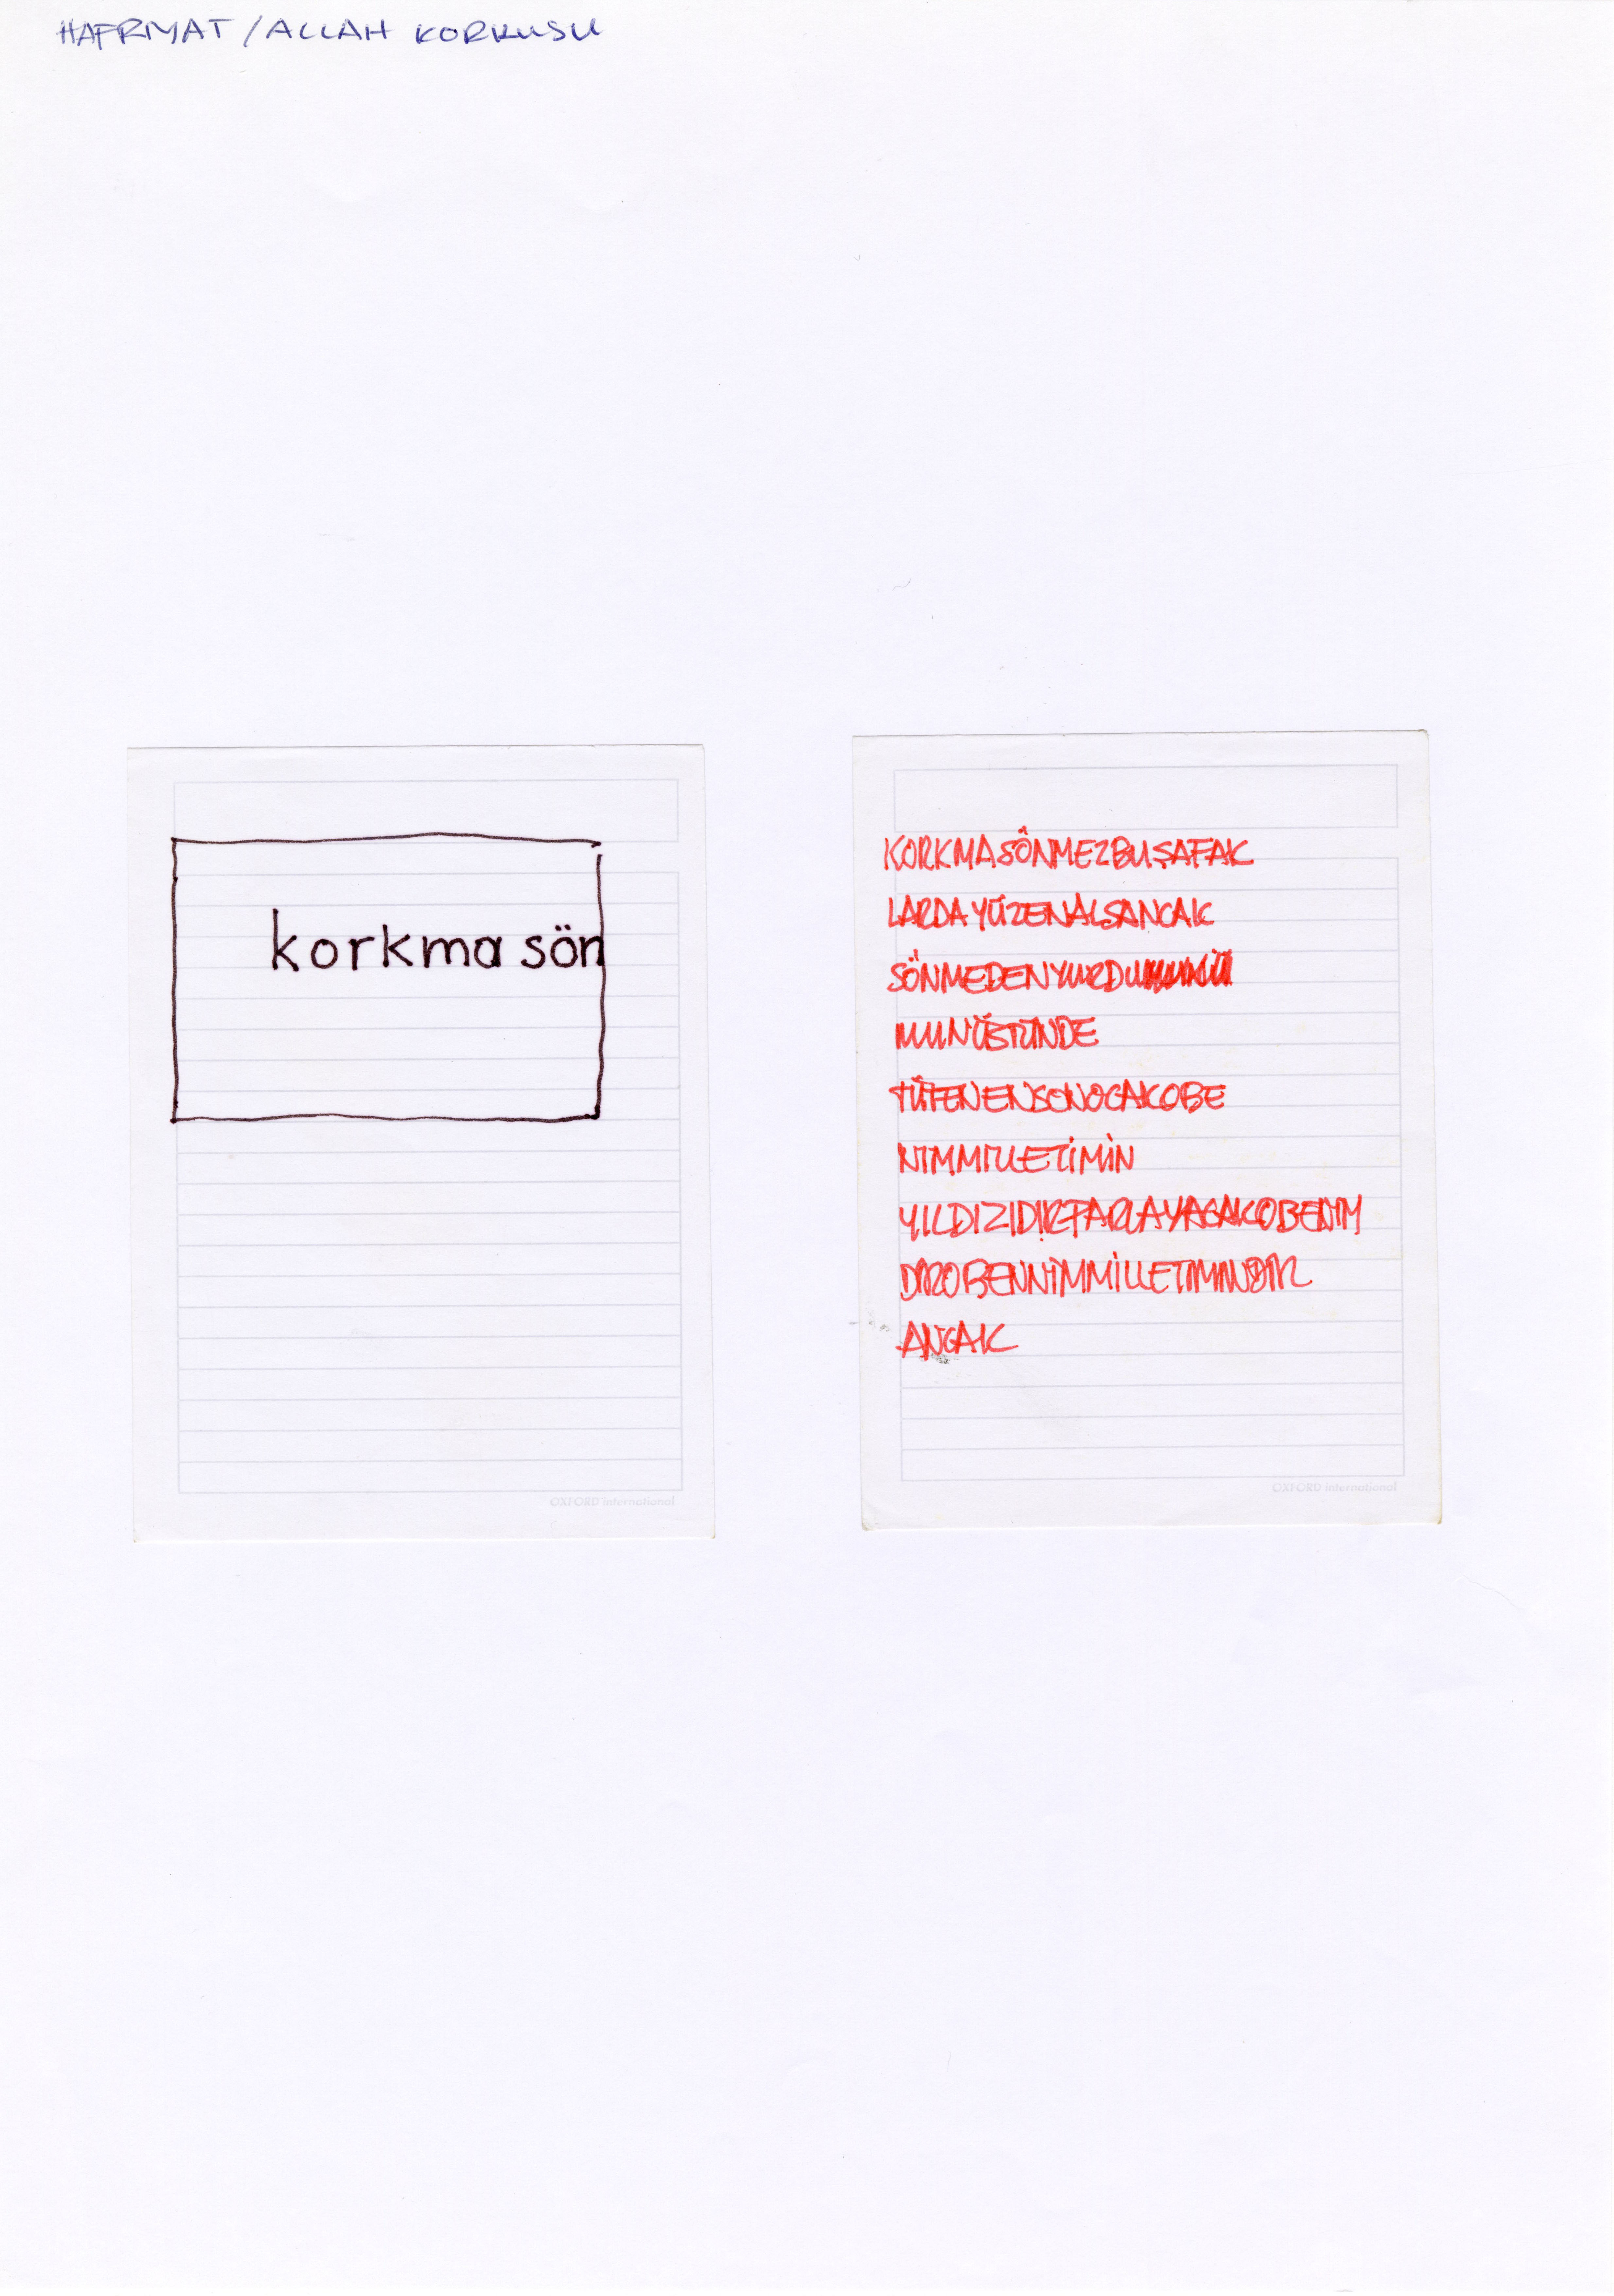 HAFRİYAT / ALLAH KORKUSU
korkma sön
OXFORD international
KORKMASÖNMEZBUŞAFAK
LARDAYÜZENALSANCAK
SÖNMEDENYURDU
MUNÜSTÜNDE
TÜTENENSONOCAKOBE
NİMMİLLETİMİN
YILDIZIDIRPARLAYACAKOBENİM
DİROBENNİMMİLLETİMİNDİR
ANCAK
OXFORD international